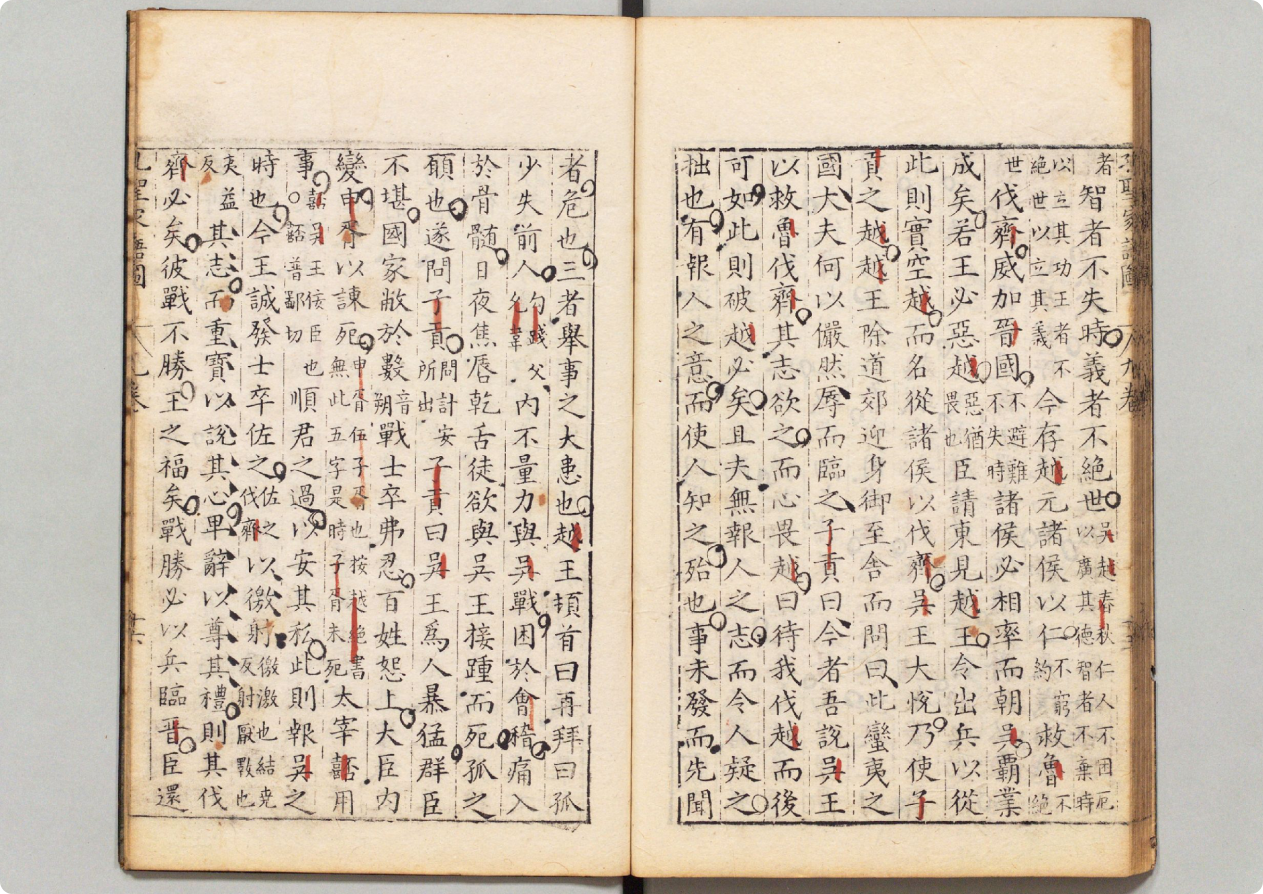 孔聖家語圖 八九卷
者智者不失時義者不絕世吳越春秋仁人不困厄以廣其德智者不棄時
以立其功王者不絕世以立其義今存越元諸侯以仁不窮約救魯不絕
世伐齊威加晉國不避難不失時諸侯必相率而朝吳覇業
成矣若王必惡越惡猶畏也臣請東見越王令出兵以從
此則實空越而名從諸侯以伐齊吳王大悅乃使子
貢之越越王除道郊迎身御至舍而問曰此蠻夷之
國大夫何以儼然辱而臨之子貢曰今者吾說吳王
以救魯伐齊其志欲之而心畏越曰待我伐越而後
可如此則破越必矣且夫無報人之志而令人疑之
拙也有報人之意而使人知之殆也事未發而先聞
者危也三者舉事之大患也越王頓首曰再拜曰孤
少失前人勾踐父內不量力與吳戰困於會稽痛入
於骨髓日夜焦唇乾舌徒欲與吳王接踵而死孤之
願也遂問子貢問計安所出子貢曰吳王爲人暴猛群臣
不堪國家敝於數音朔戰士卒弗忍百姓怨上大臣內
變申胥以諫死申胥伍子胥也按越絕書無此五字是時子胥未死太宰嚭用
事嚭吳王佞臣也嚭普鄙切順君之過以安其私此則報吳之
時也今王誠發士卒佐之佐之伐齊以徼射徼激也結尭反射厭斁也
夷益反其志而重寶以說其心卑辭以尊其禮則其伐
齊必矣彼戰不勝王之福矣戰勝必以兵臨晉臣還
孔聖家語圖 八九卷 十六